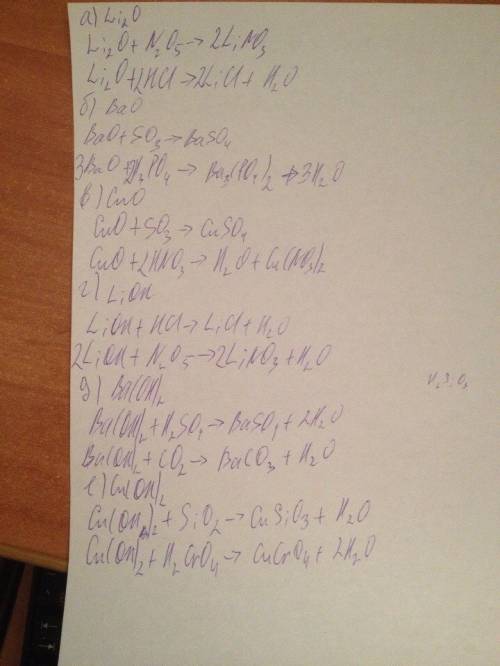 а) Li₂O
Li₂O + N₂O₅ → 2LiNO₃
Li₂O + 2HCl → 2LiCl + H₂O
б) BaO
BaO + SO₃ → BaSO₄
3BaO + 2H₃PO₄ → Ba₃(PO₄)₂ + 3H₂O
в) CuO
CuO + SO₃ → CuSO₄
CuO + 2HNO₃ → H₂O + Cu(NO₃)₂
г) LiOH
LiOH + HCl → LiCl + H₂O
2LiOH + N₂O₅ → 2LiNO₃ + H₂O
д) Ba(OH)₂
Ba(OH)₂ + H₂SO₄ → BaSO₄ + 2H₂O
Ba(OH)₂ + CO₂ → BaCO₃ + H₂O
е) Cu(OH)₂
Cu(OH)₂ + SiO₂ → CuSiO₃ + H₂O
Cu(OH)₂ + H₂CrO₄ → CuCrO₄ + 2H₂O